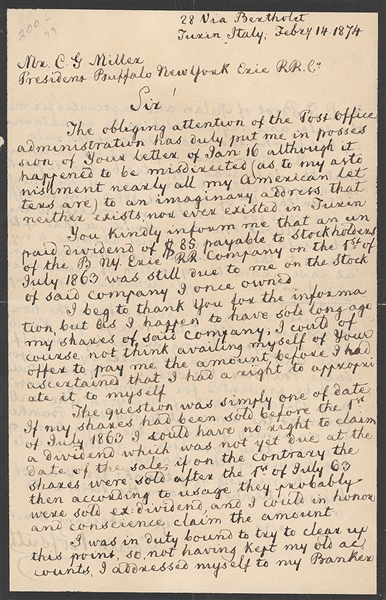 200-
79
28 Via Bertholet
Turin, Italy, Febry 14 1874
Mr. C. G Miller
President Buffalo New York Erie R.R. Co
Sir!
The obliging attention of the Post Office
administration has duly put me in posses
sion of Your letter of Jan: 16 although it
happened to be misdirected (as to my asto
nishment nearly all my American let
ters are) to an imaginary address that
neither exists, nor ever existed in Turin
You kindly inform me that an un
paid dividend of $85 payable to stockholders
of the B N.Y. Erie RR Company on the 1st of
July 1863 was still due to me on the stock
of said company I once owned
I beg to thank You for the informa
tion, but as I happen to have sold long ago
my shares of said company, I could of
course not think availing myself of Your
offer to pay me the amount, before I had
ascertained that I had a right to appropri
ate it to myself
The question was simply one of date
If my shares had been sold before the 1st
of July 1863 I sould have no right to claim
a dividend which was not yet due at the
date of the sale; if on the contrary the
shares were sold after the 1st of July 63
then according to usage they probably
were sold ex:dividend, and I could in honor
and conscience, claim the amount
I was in duty bound to try to clear up
this point, so, not having kept my old ac
counts, I addressed myself to my Banker